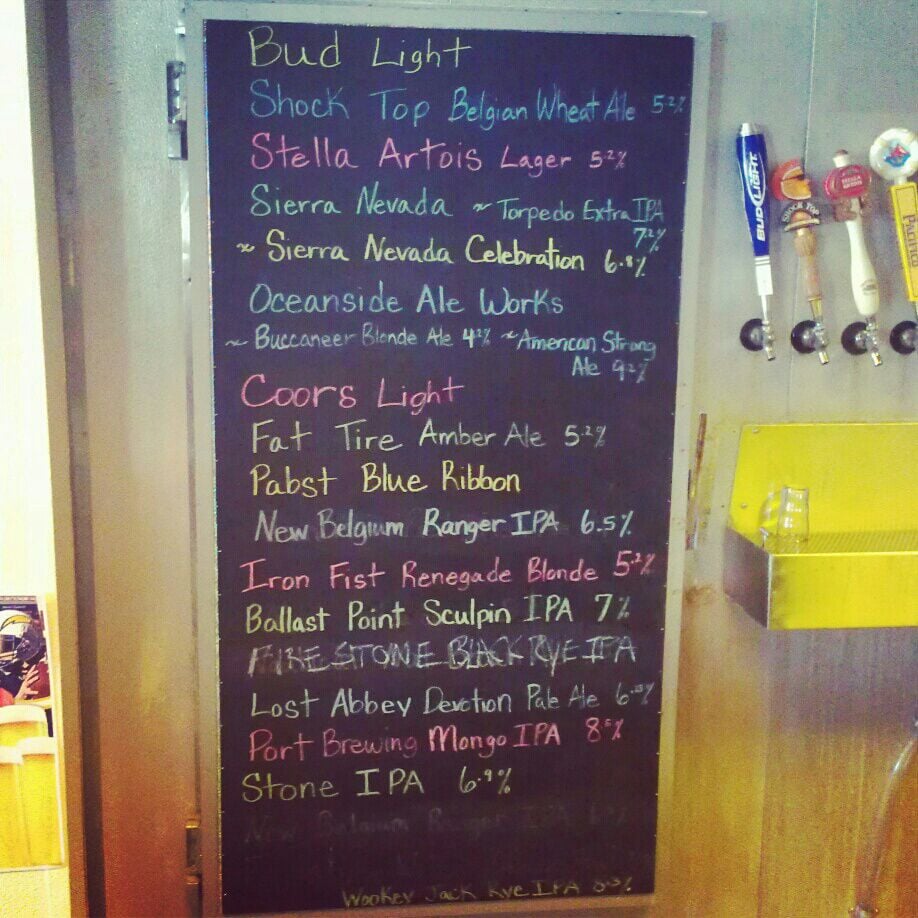 Bud Light
Shock Top Belgian Wheat Ale 5.2%
Stella Artois Lager 5.2%
Sierra Nevada ~ Torpedo Extra IPA
7.2%
~ Sierra Nevada Celebration 6.8%
Oceanside Ale Works
~ Buccaneer Blonde Ale 4.2% ~ American Strong
Ale 9.2%
Coors Light
Fat Tire Amber Ale 5.2%
Pabst Blue Ribbon
New Belgium Ranger IPA 6.5%
Iron Fist Renegade Blonde 5.2%
Ballast Point Sculpin IPA 7%
FIRESTONE BLACK RYE IPA
Lost Abbey Devotion Pale Ale
Port Brewing Mongo IPA 8.5%
Stone IPA 6.9%
New Belgium Ranger IPA
Wookey Jack Rye IPA
BUD LIGHT
SHOCK TOP
STELLA ARTOIS
PACIFICO